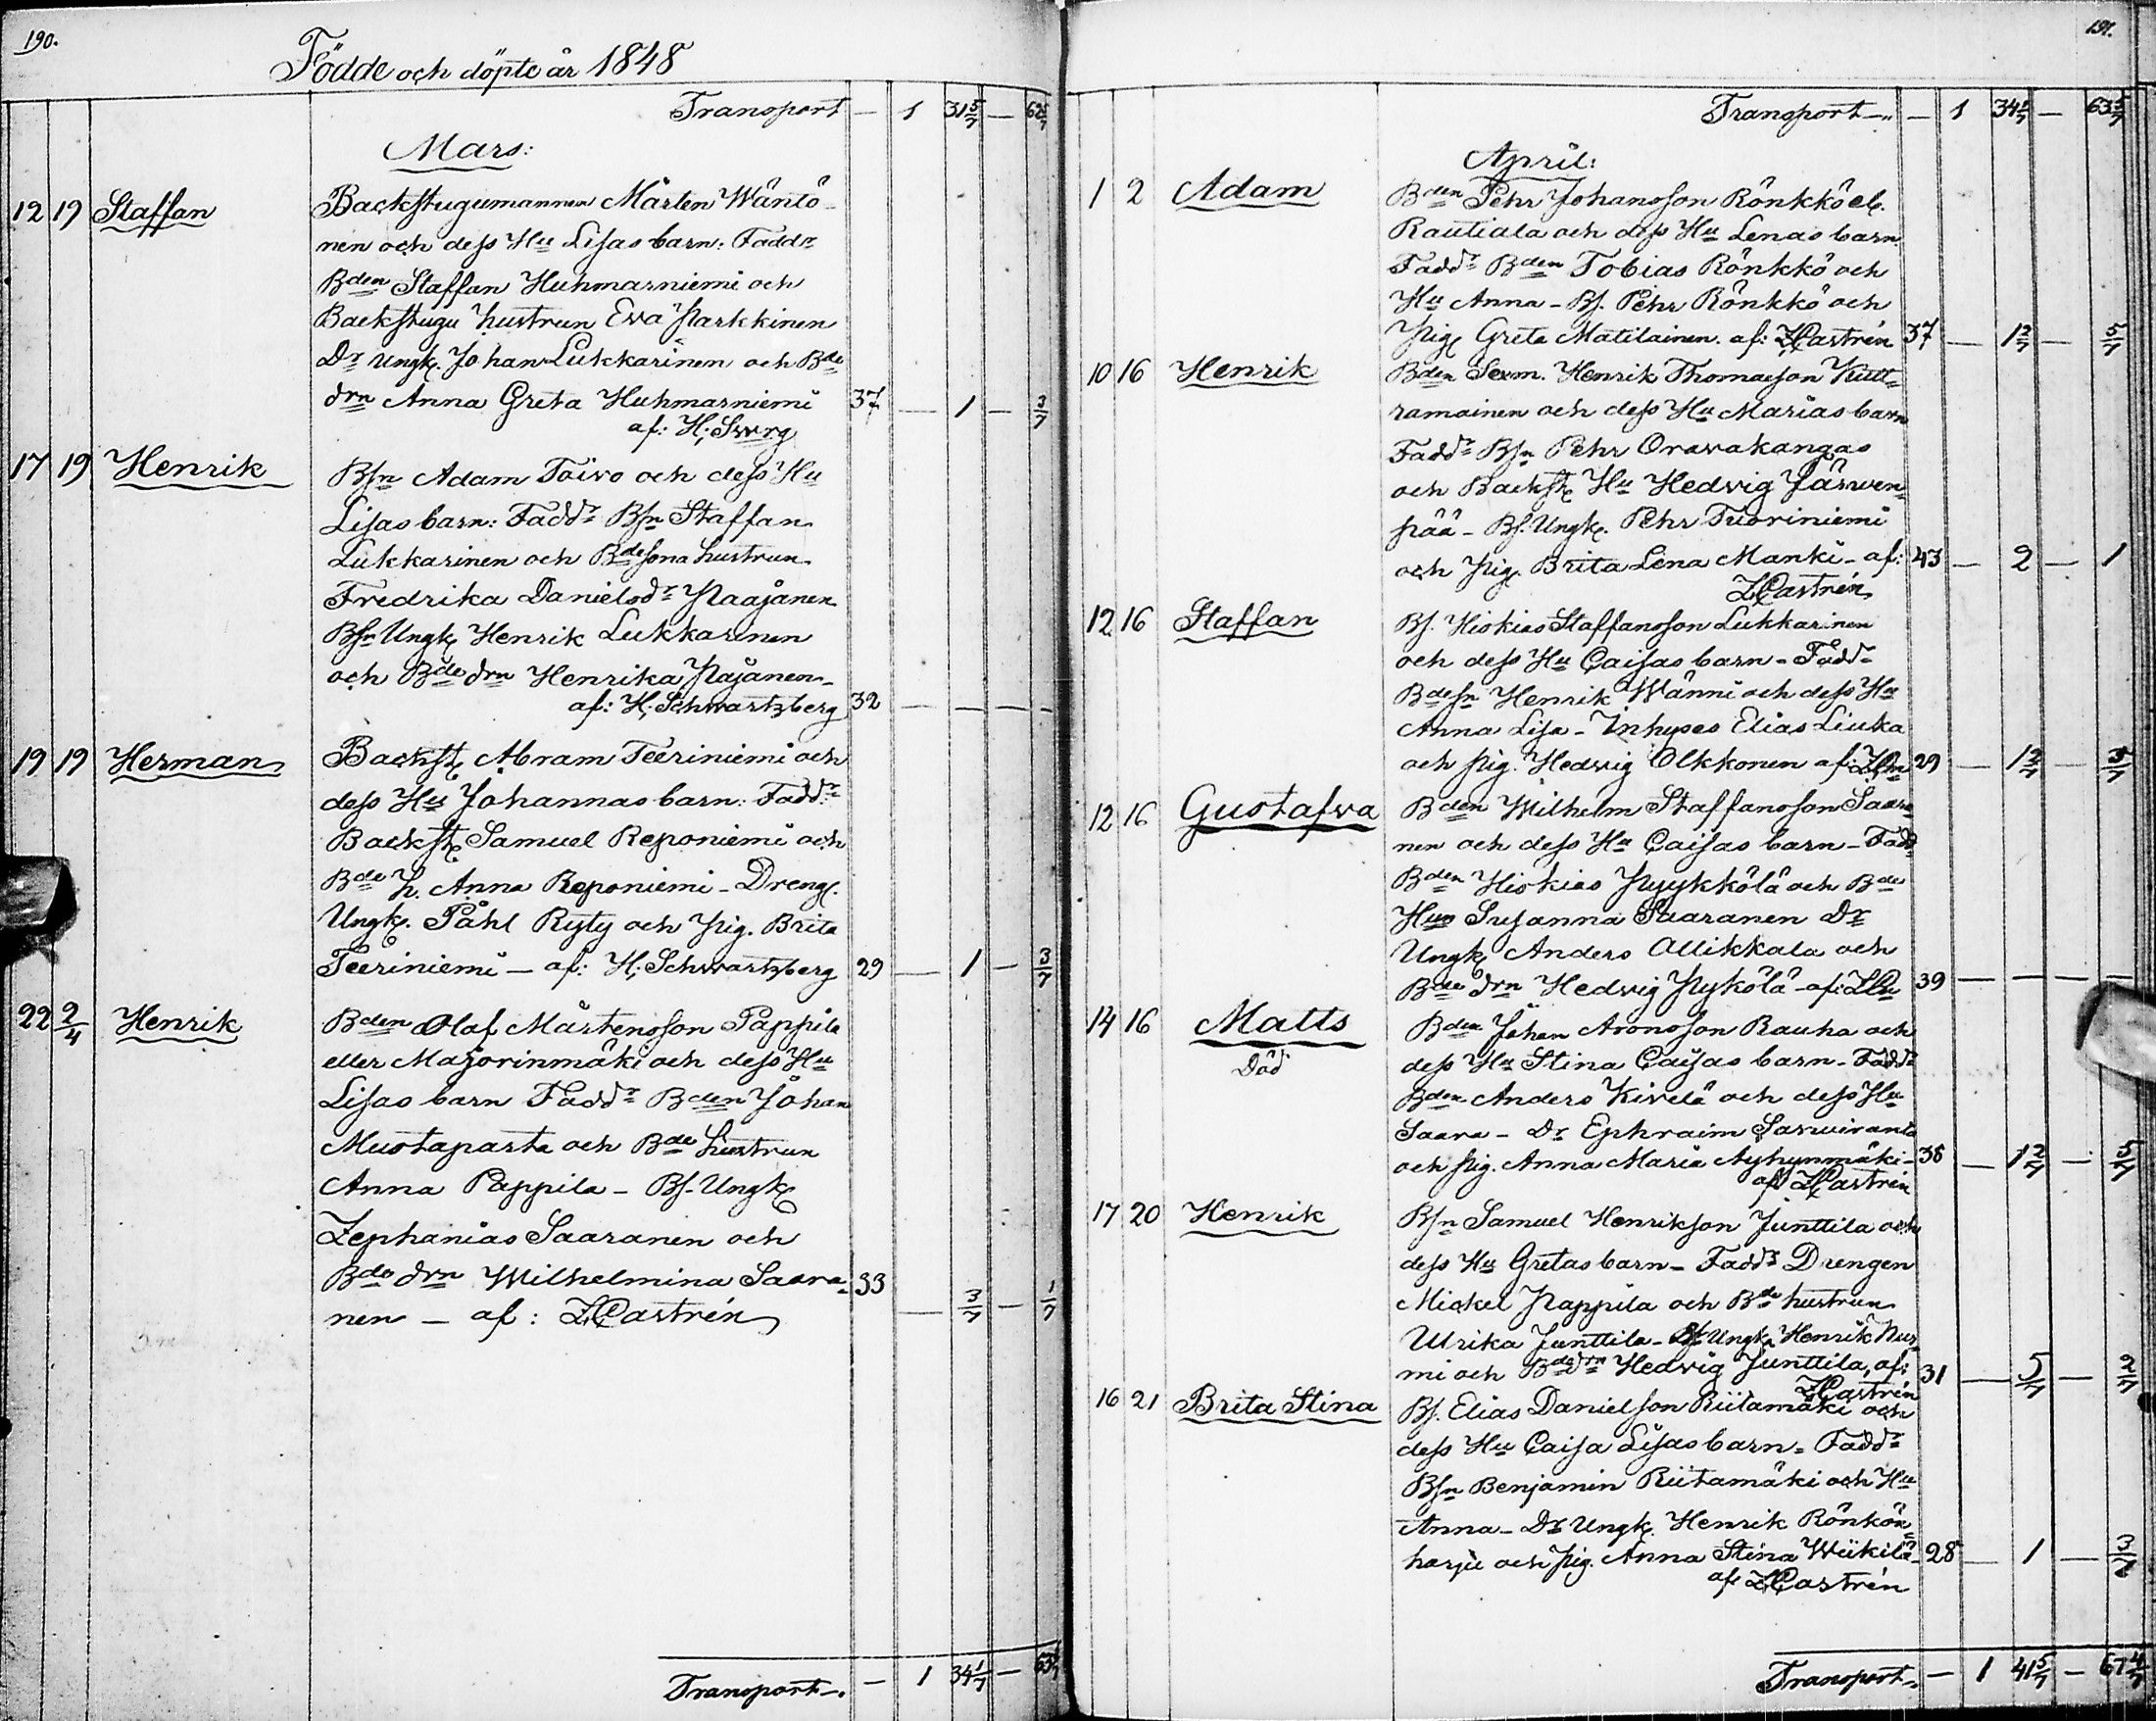 190.
Födde och döpte år 1848
Transport — 1 31 5/7 —
Mars:
12 19 Staffan Backstugumannen Mårten Wäntö-
nen och dess Hu Lisas barn: Faddr
Bden Staffan Huhmarniemi och
Backstugu hustrun Eva Parkkinen
Dr Ungk. Johan Lukkarinen och Bde
drn Anna Greta Huhmarniemi 37 — 1 — 3/7
af: H. Swrg
17 19 Henrik Bsn Adam Toivo och dess Hu
Lisas barn: Faddr Bsn Staffan
Lukkarinen och Bdesona hustrun
Fredrika Danielsdr Paajanen
Bsn Ungk. Henrik Lukkarinen
och Bde drn Henrika Pajanen
af: H. Schwartzberg 32 — — — —
19 19 Herman Backst. Abram Teeriniemi och
dess Hu Johannas barn: Faddr
Backst. Samuel Reponiemi och
Bde h. Anna Reponiemi - Dreng.
Ungk. Påhl Ryty och pig. Brita
Teeriniemi — af: H. Schwartzberg 29 — 1 — 3/7
22 2/4 Henrik Bden Olaf Mårtensson Pappila
eller Majorinmäki och dess Hu
Lisas barn Faddr Bden Johan
Mustaparta och Bde hustrun
Anna Pappila - Bs. Ungk.
Zephanias Saaranen och
Bde drn Wilhelmina Saara- 33
nen — af: Z. Castrén — 3/7 — 1/7
Transport —. — 1 34 1/7 —
191.
Transport —" — 1 — 63 5/7
April:
1 2 Adam Bden Pehr Johansson Rönkkö el.
Rautiala och dess Hu Lenas barn
Faddr Bden Tobias Rönkkö och
Hu Anna - Bs. Pehr Rönkkö och
Pig. Greta Matilainen. af: Z. Castrén 37 — 1 2/7 — 5/7
10 16 Henrik Bden Sexm. Henrik Thomasson Kutt-
ramainen och dess Hu Marias barn
Faddr Bsn Pehr Oravakangas
och Backst. Hu Hedvig Järwen-
pää - Bs. Ungk. Pehr Tuoriniemi
och pig. Brita Lena Manki - af: 43 — 2 — 1
Z. Castrén
12 16 Staffan Bs. Hiskias Staffansson Lukkarinen
och dess Hu Caisas barn - Faddr
Bdesn Henrik Wänni och dess Hu
Anna Lisa - Inhyses Elias Liuka
och pig. Hedvig Olkkonen af: 29 — 1 2/7 — 5/7
12 16 Gustafva Bden Wilhelm Staffansson Saara-
nen och dess Hu Caisas barn - Faddr
Bden Hiskias Pyykkölä och Bde
Hus Susanna Saaranen Dr
Ungk. Anders Ollikkala och
Bde drn Hedvig Pykölä - af: 39 — — — —
14 16 Matts Bden Johan Aronsson Rauha och
Död dess Hu Stina Caisas barn - Faddr
Bden Anders Kivelä och dess Hu
Saara - Dr Ephraim Sarwiranta
och pig. Anna Maria Nyhynmäki - 38 — 1 2/7 — 5/7
af Z. Castrén
17 20 Henrik Bsn Samuel Henriksson Junttila och
dess Hu Gretas barn - Faddr Drengen
Mickel Pappila och Bde hustrun
Ulrika Junttila - Bs. Ungk. Henrik Nur-
mi och Bdedrn Hedvig Junttila, af: 31 — 5/7 — 2/7
Z. Castrén
16 21 Brita Stina Bs. Elias Danielsson Riitamäki och
dess Hu Caisa Lisas barn - Faddr
Bsn Benjamin Riitamäki och Hu
Anna - Dr Ungk. Henrik Rönkön-
harju och pig. Anna Stina Wiikilä - 28 — 1 —
af Z. Castrén
Transport —. — 1 41 5/7 — 67 4/7